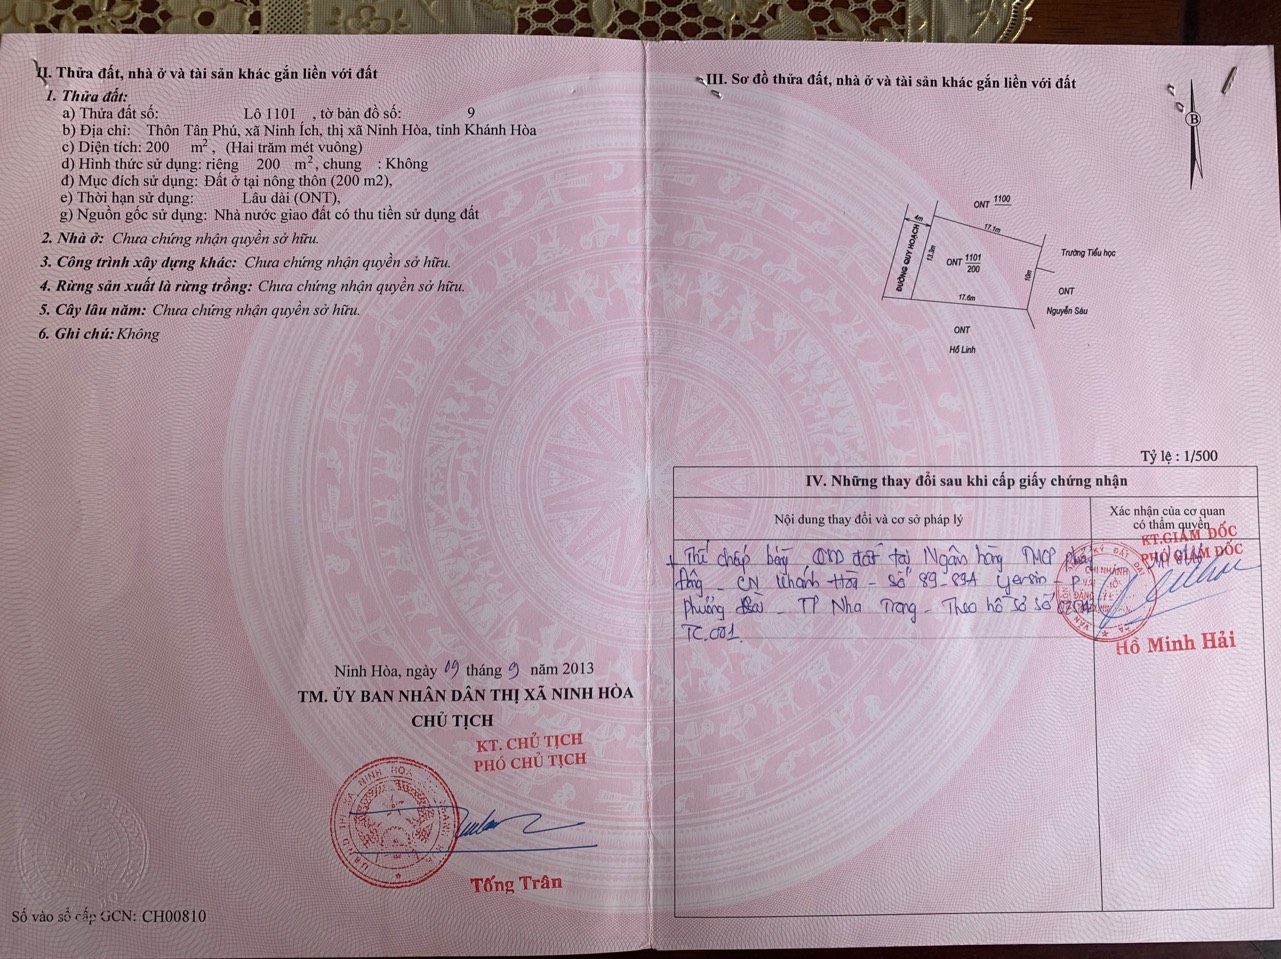 II. Thửa đất, nhà ở và tài sản khác gắn liền với đất
1. Thửa đất:
a) Thửa đất số: Lô 1101 , tờ bản đồ số: 9
b) Địa chỉ: Thôn Tân Phú, xã Ninh Ích, thị xã Ninh Hòa, tỉnh Khánh Hòa
c) Diện tích: 200 m², (Hai trăm mét vuông)
d) Hình thức sử dụng: riêng 200 m², chung : Không
đ) Mục đích sử dụng: Đất ở tại nông thôn (200 m2),
e) Thời hạn sử dụng: Lâu dài (ONT),
g) Nguồn gốc sử dụng: Nhà nước giao đất có thu tiền sử dụng đất
2. Nhà ở: Chưa chứng nhận quyền sở hữu.
3. Công trình xây dựng khác: Chưa chứng nhận quyền sở hữu.
4. Rừng sản xuất là rừng trồng: Chưa chứng nhận quyền sở hữu.
5. Cây lâu năm: Chưa chứng nhận quyền sở hữu.
6. Ghi chú: Không
Ninh Hòa, ngày 09 tháng 9 năm 2013
TM. ỦY BAN NHÂN DÂN THỊ XÃ NINH HÒA
CHỦ TỊCH
KT. CHỦ TỊCH
PHÓ CHỦ TỊCH
Tống Trân
Số vào sổ cấp GCN: CH00810
III. Sơ đồ thửa đất, nhà ở và tài sản khác gắn liền với đất
B
ONT 1100
4m
17.1m
ĐƯỜNG QUY HOẠCH
13.3m
ONT 1101
200
10m
Trường Tiểu học
17.6m
ONT
Nguyễn Sáu
ONT
Hồ Linh
Tỷ lệ : 1/500
IV. Những thay đổi sau khi cấp giấy chứng nhận
Nội dung thay đổi và cơ sở pháp lý
Xác nhận của cơ quan
có thẩm quyền
KT.GIÁM ĐỐC
PHÓ GIÁM ĐỐC
Thế chấp bằng QSD đất tại Ngân hàng TMCP
Đông - CN Khánh Hòa - Số 89-89A Yersin - P.
Phương Sài - TP Nha Trang - Theo hồ sơ số
TC.001.
CHI NHÁNH
Hồ Minh Hải